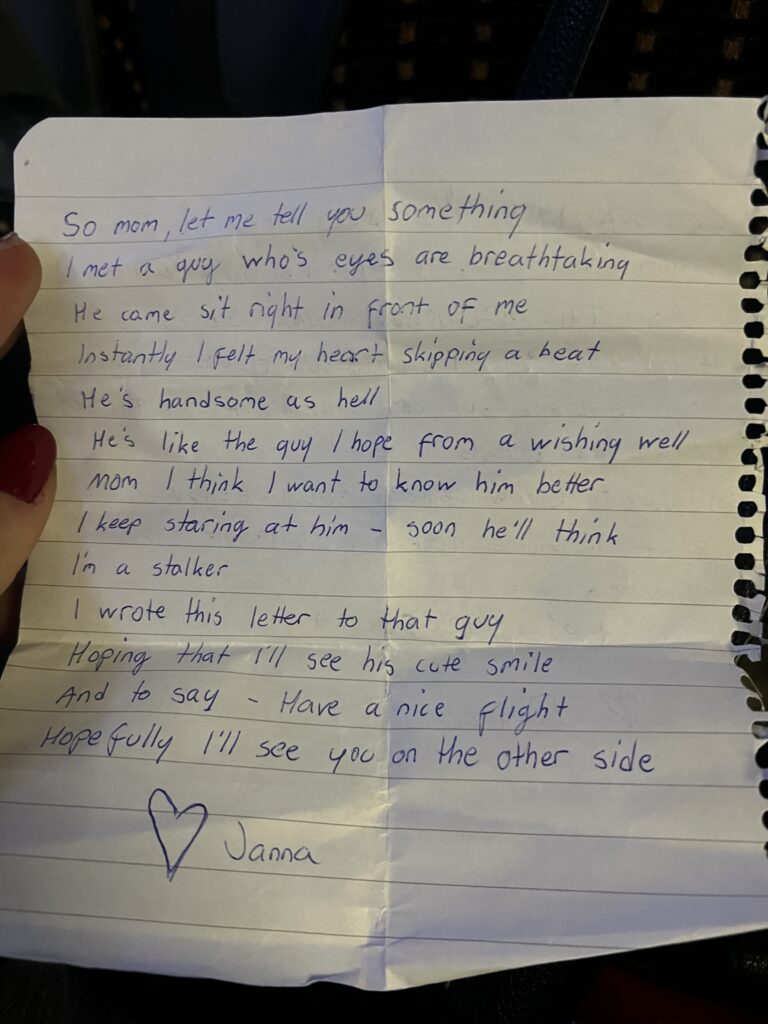 So mom, let me tell you something
I met a guy who's eyes are breathtaking
He came sit right in front of me
Instantly I felt my heart skipping a beat
He's handsome as hell
He's like the guy I hope from a wishing well
Mom I think I want to know him better
I keep staring at him - soon he'll think
I'm a stalker
I wrote this letter to that guy
Hoping that I'll see his cute smile
And to say - Have a nice flight
Hopefully I'll see you on the other side
Janna